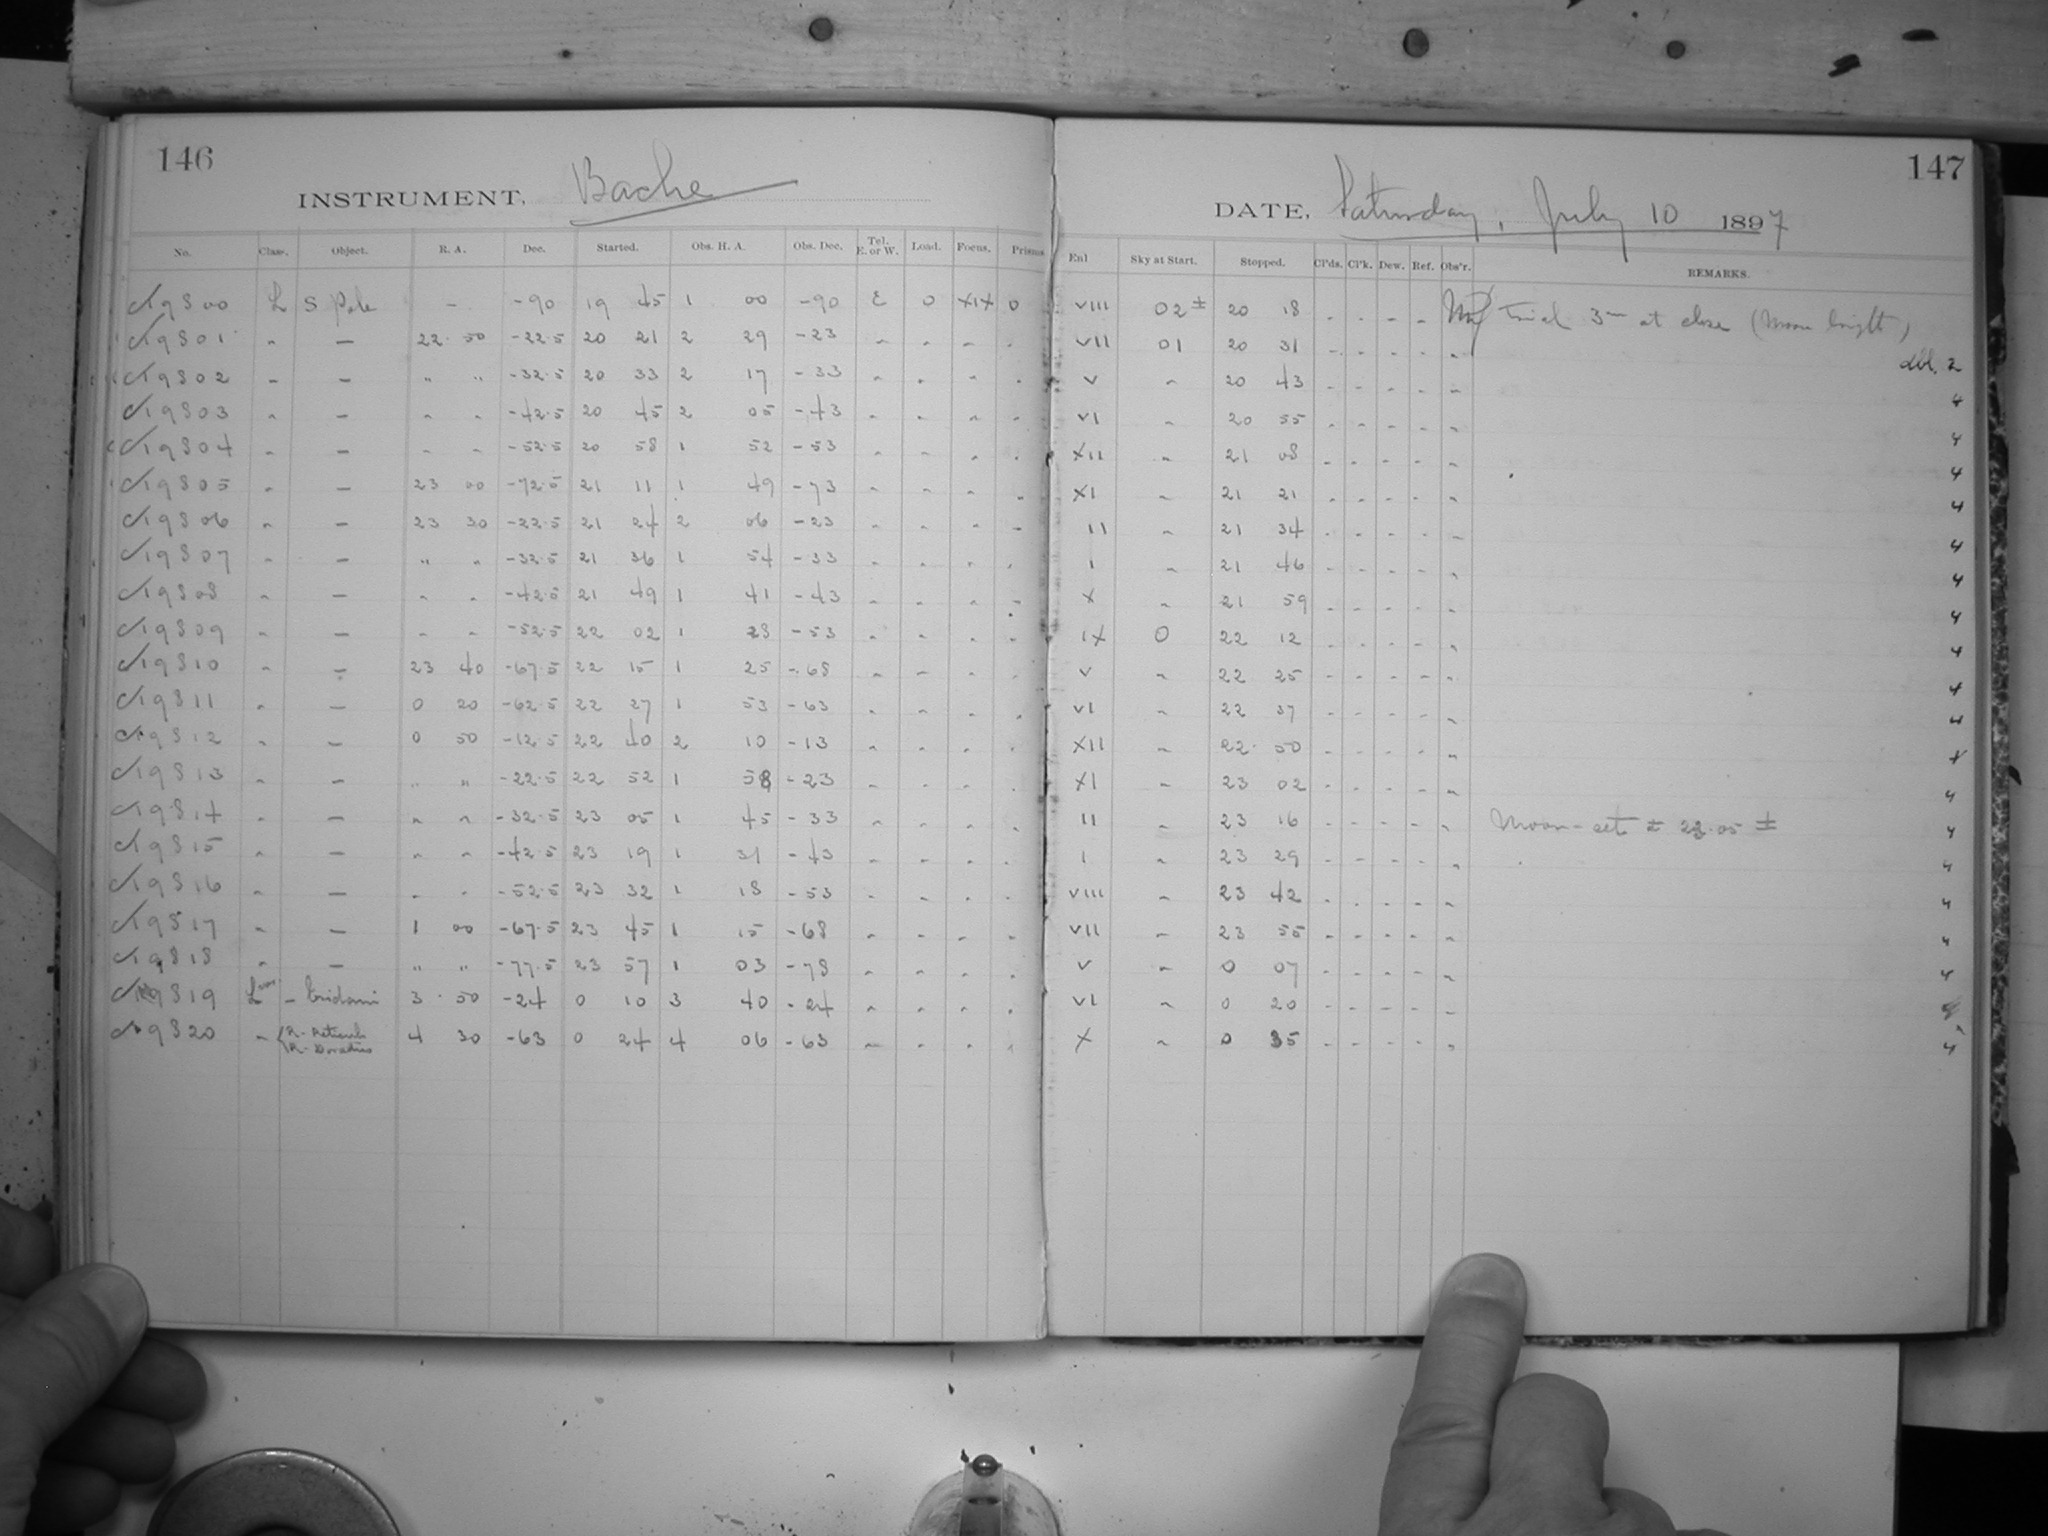 146
INSTRUMENT, Bache
No. Class. Object. R. A. Dec. Started. Obs. H. A. Obs. Dec. Tel. E. or W. Load. Focus. Prisms
19800 L S Pole - -90 19 45 1 00 -90 E 0 XIX 0
19801 " — 22 50 -22.5 20 21 2 29 -23 " " " "
19802 " — " " -32.5 20 33 2 17 -33 " " " "
19803 " — " " -42.5 20 45 2 05 -43 " " " "
19804 " — " " -52.5 20 58 1 52 -53 " " " "
19805 " — 23 00 -72.5 21 11 1 49 -73 " " " "
19806 " — 23 30 -22.5 21 24 2 06 -23 " " " "
19807 " — " " -32.5 21 36 1 54 -33 " " " "
19808 " — " " -42.5 21 49 1 41 -43 " " " "
19809 " — " " -52.5 22 02 1 28 -53 " " " "
19810 " — 23 40 -67.5 22 15 1 25 -68 " " " "
19811 " — 0 20 -62.5 22 27 1 53 -63 " " " "
19812 " — 0 50 -12.5 22 40 2 10 -13 " " " "
19813 " — " " -22.5 22 52 1 58 -23 " " " "
19814 " — " " -32.5 23 05 1 45 -33 " " " "
19815 " — " " -42.5 23 19 1 31 -43 " " " "
19816 " — " " -52.5 23 32 1 18 -53 " " " "
19817 " — 1 00 -67.5 23 45 1 15 -68 " " " "
19818 " — " " -77.5 23 57 1 03 -78 " " " "
19819 L - Eridani 3 50 -24 0 10 3 40 -24 " " " "
19820 " { R. Reticuli
R. Doradus 4 30 -63 0 24 4 06 -63 " " " "
147
DATE, Saturday, July 10 1897
Enl Sky at Start. Stopped. Cl'ds. Cl'k. Dew. Ref. Obs'r. REMARKS.
VIII 02± 20 18 - - - - Trial 3m at close (Moon bright)
VII 01 20 31 - - - - "
dbl. 2
V " 20 43 - - - - " 4
VI " 20 55 - - - - " 4
XII " 21 08 - - - - " 4
XI " 21 21 - - - - " 4
II " 21 34 - - - - " 4
I " 21 46 - - - - " 4
X " 21 59 - - - - " 4
IX 0 22 12 - - - - " 4
V " 22 25 - - - - " 4
VI " 22 37 - - - - " 4
XII " 22 50 - - - - " 4
XI " 23 02 - - - - " 4
II " 23 16 - - - - " Moon-sets ± 23.05 ± 4
I " 23 29 - - - - " 4
VIII " 23 42 - - - - " 4
VII " 23 55 - - - - " 4
V " 0 07 - - - - " 4
VI " 0 20 - - - - "
X " 0 35 - - - - " 4